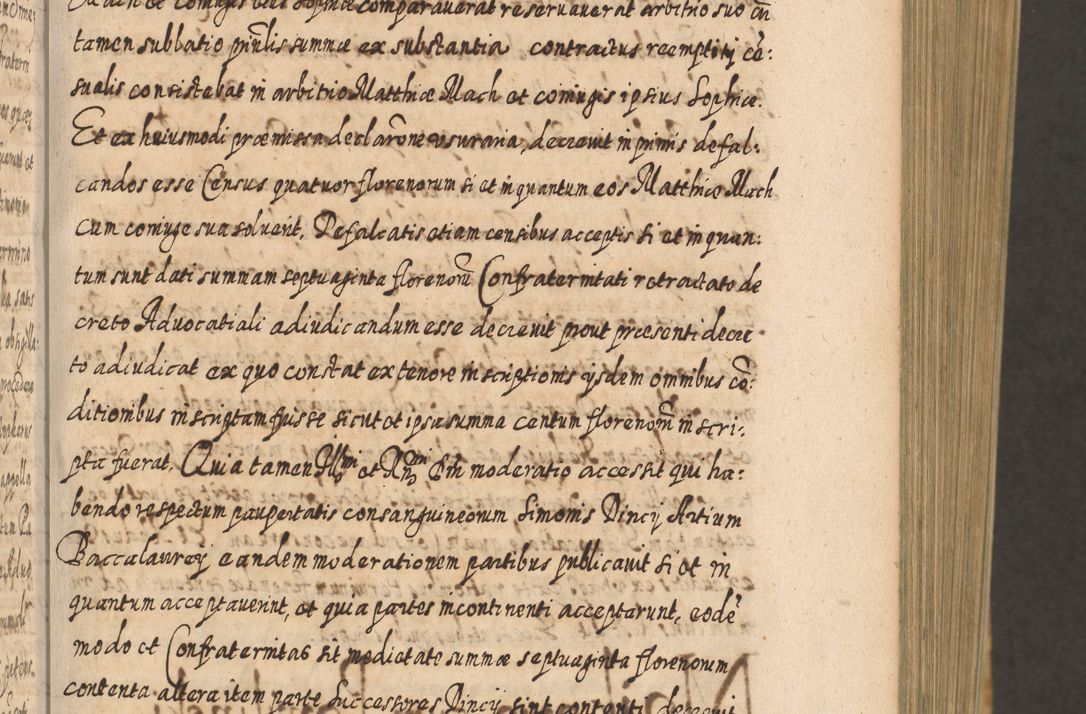 comparaverat reservaverat arbitrio suo cū
tamen sublatio pr̄nlis summæ ex substantia contractus reemptity cē:
sualis consistebat in arbitrio Matthiæ Mach et coniugis ipsius Sophiæ.
Et ex huiusmodi præmissa declarōne usuraria, decrevit in primis defal:
candos esse Census quatuor florenorum si et in quantum eos Matthiæ Mach
cum coniuge sua solverit, Defalcatis etiam censibus acceptis si et in quan:
tum sunt dati summam septuaginta florenorū Confraternitati retractato de
creto Advocatiali adiudicandum esse decrevit prout præsenti decre
to adiudicat ex quo constat ex tenore inscriptionis ijsdem omnibus cō:
ditionibus inscriptam fuisse sicut et ipsa summa centum florenorū inscri:
pta fuerat. Quia tamen Illmi et Rmi Dni moderatio accessit qui ha:
bendo respectum paupertatis consanguineorum Simonis Dincij Artium
Baccalaurej eandem moderationem partibus publicavit si et in
quantum acceptaverint, et quia partes incontinenti acceptarunt, eodē
modo et Confraternitas sit medietate summæ septuaginta florenorum
contenta altera item parte Successores Dincij sint contenti decrevit